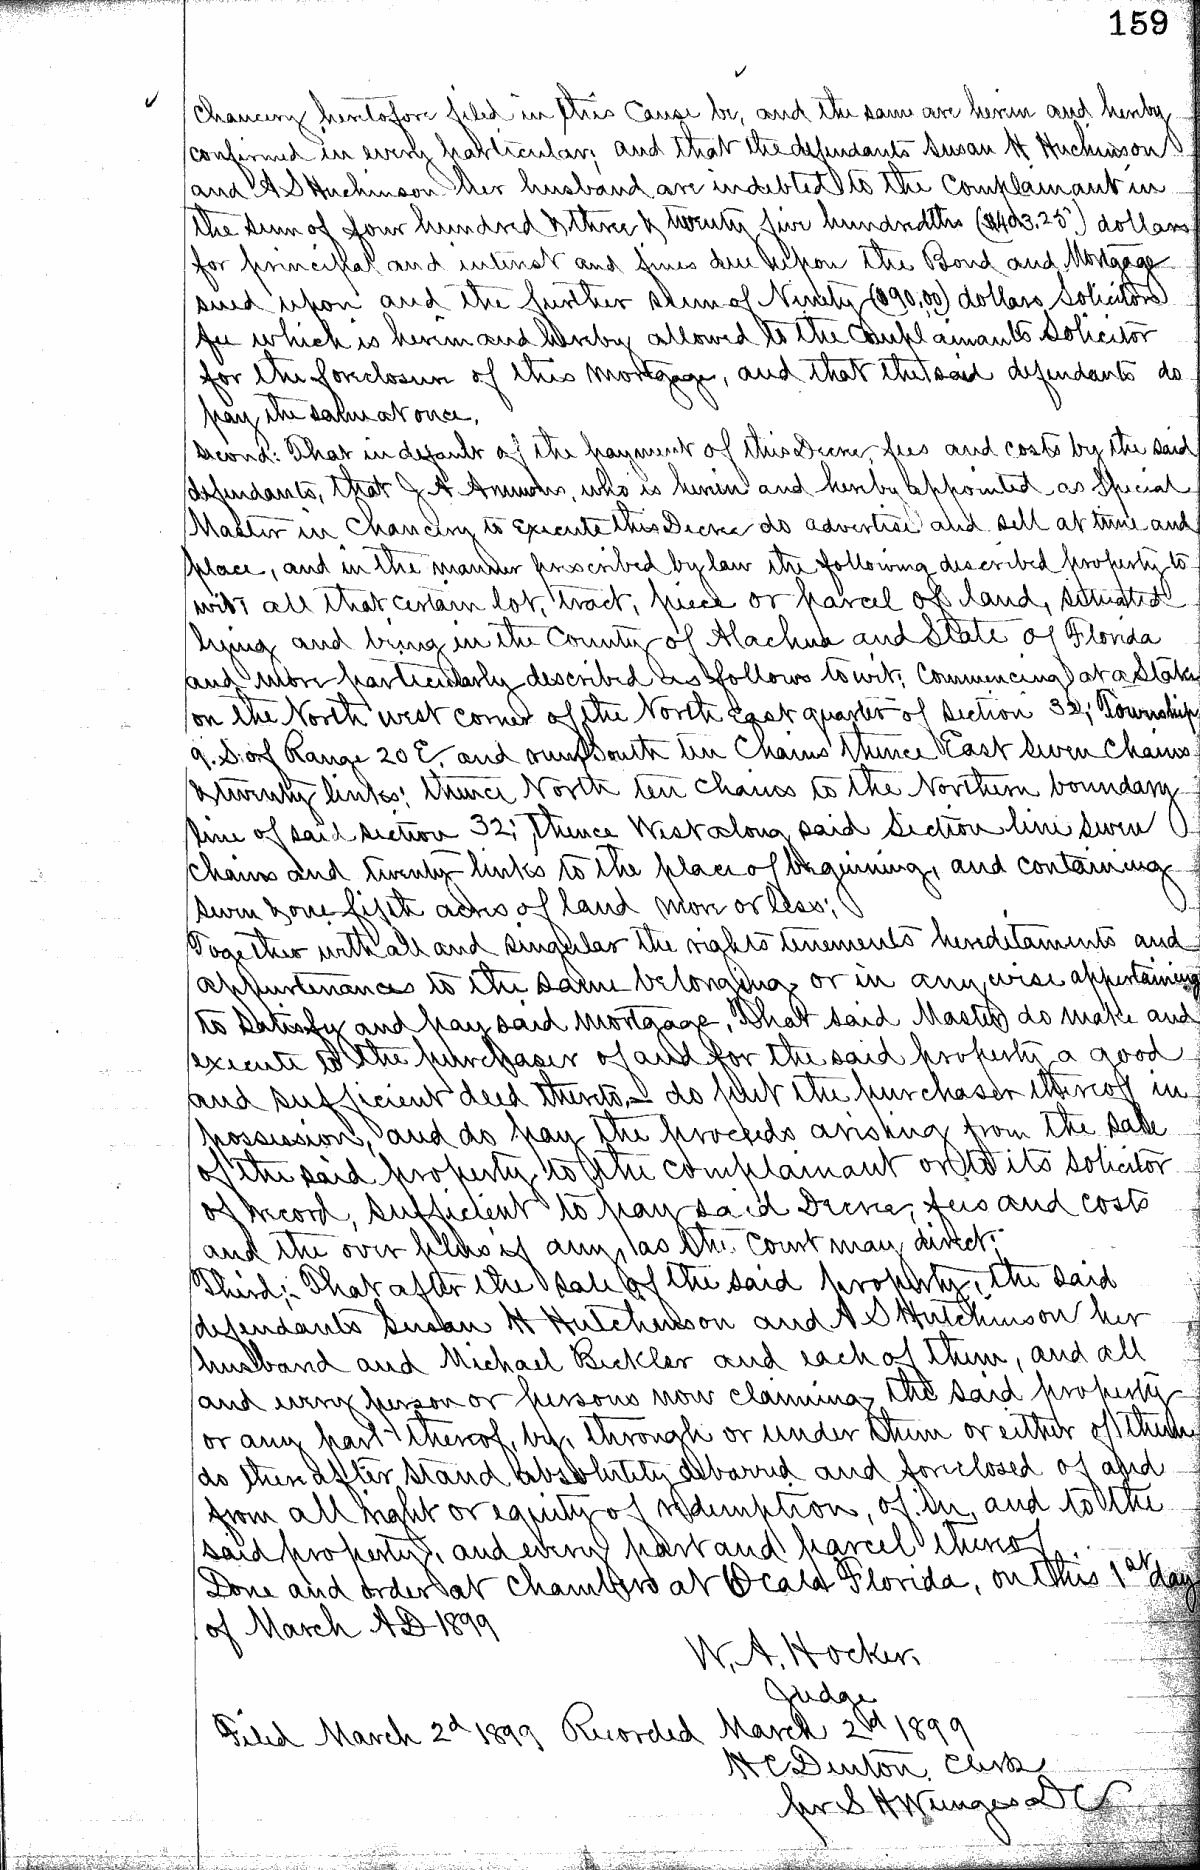 159
Chancery heretofore filed in this Cause be, and the same are herein and hereby
confirmed in every particular; and that the defendants Susan H Huchinson
and A S Huchinson her husband are indebted to the Complainant in
the sum of four hundred & three & twenty five hundredths ($403.25) dollars
for principal and interest and fines due upon the Bond and Mortgage
sued upon and the further sum of Ninety ($90.00) dollars Solicitors
fee which is herein and hereby allowed to the Complainants Solicitor
for the foreclosure of this mortgage, and that the said defendants do
pay the same at once.
Second: That in default of the payment of this Decree, fees and costs by the said
defendants, that J A Ammons, who is herein and hereby appointed as Special
Master in Chancery to execute this Decree do advertise and sell at time and
place, and in the manner prescribed by law the following described property to
wit: all that certain lot, tract, piece or parcel of land, situated
lying and being in the County of Alachua and State of Florida
and more particularly described as follows to wit; Commencing at a Stake
on the North west corner of the North East quarter of Section 32; Township
9. S. of Range 20 E. and run South ten Chains thence East seven Chains
& twenty links; thence North ten chains to the Northern boundary
line of said section 32; Thence West along said Section line seven
Chains and twenty links to the place of beginning, and containing
seven & one fifth acres of land more or less;
Together with all and singular the rights tenements hereditaments and
appurtenances to the same belonging or in any wise appertaining
to satisfy and pay said mortgage, That said Master do make and
execute to the purchaser of and for the said property a good
and sufficient deed thereto, & do put the purchaser thereof in
possession, and do pay the proceeds arising from the sale
of the said property to the complainant or to its solicitor
of record, sufficient to pay said Decree, fees and costs
and the over plus if any, as the Court may direct;
Third;- That after the sale of the said property, the said
defendants Susan H Hutchinson and A S Hutchinson her
husband and Michael Beckler and each of them, and all
and every person or persons now claiming the said property
or any part thereof, by, through or under them or either of them
do thereafter stand absolutely debarred and foreclosed of and
from all right or equity of redemption, of in, and to the
said property, and every part and parcel thereof.
Done and order at Chambers at Ocala Florida, on this 1st day
of March AD 1899
W. A. Hocker.
Judge
Filed March 2d 1899 Recorded March 2nd 1899
H C Denton, Clerk
per S H Wienges D C